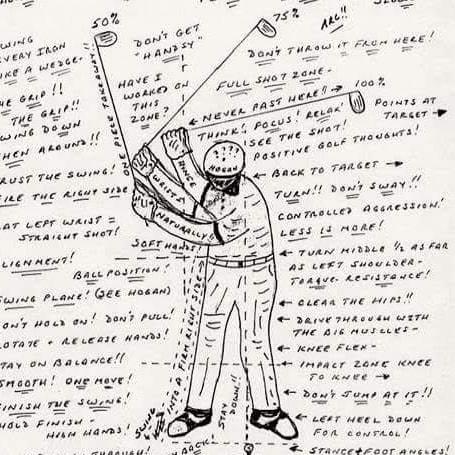 50%
75%
ARG!!
DON'T GET
"HANDSY"
DON'T THROW IT FROM HERE!
WING
VERY IRON
KE A WEDGE-
ONE PIECE TAKEAWAY!!
HAVE I
WORKED ON
THIS
ZONE?
FULL SHOT ZONE-
NEVER PAST HERE!!
100%
POINTS AT
TARGET
E GRIP!!
THE GRIP!!
WING DOWN
HEN AROUND!!
THINK! FOCUS! RELAX
SEE THE SHOT!
POSITIVE GOLF THOUGHTS!
HINGE
WRISTS
NATURALLY!
????
HOGAN
BACK TO TARGET
RUST THE SWING!
IRE THE RIGHT SIDE
TURN!! DON'T SWAY!!
CONTROLLED AGGRESSION!
LESS IS MORE!
AT LEFT WRIST =
STRAIGHT SHOT!
SOFT HANDS!
LIGNMENT!
BALL POSITION!
TURN MIDDLE ½ AS FAR
AS LEFT SHOULDER-
TORQUE- RESISTANCE!
SWING PLANE! (SEE HOGAN)
CLEAR THE HIPS!!
ON'T HOLD ON! DON'T PULL!
OTATE + RELEASE HANDS!
DRIVE THROUGH WITH
THE BIG MUSCLES-
KNEE FLEX-
TAY ON BALANCE!!
SMOOTH! ONE MOVE!
IMPACT ZONE KNEE
TO KNEE
SWING
INTO A FIRM RIGHT SIDE
STAY DOWN!!
DON'T JUMP AT IT!!
FINISH THE SWING!
HOLD FINISH -
HIGH HANDS!
LEFT HEEL DOWN
FOR CONTROL!
THROUGH!
BACK
STANCE + FOOT ANGLES!